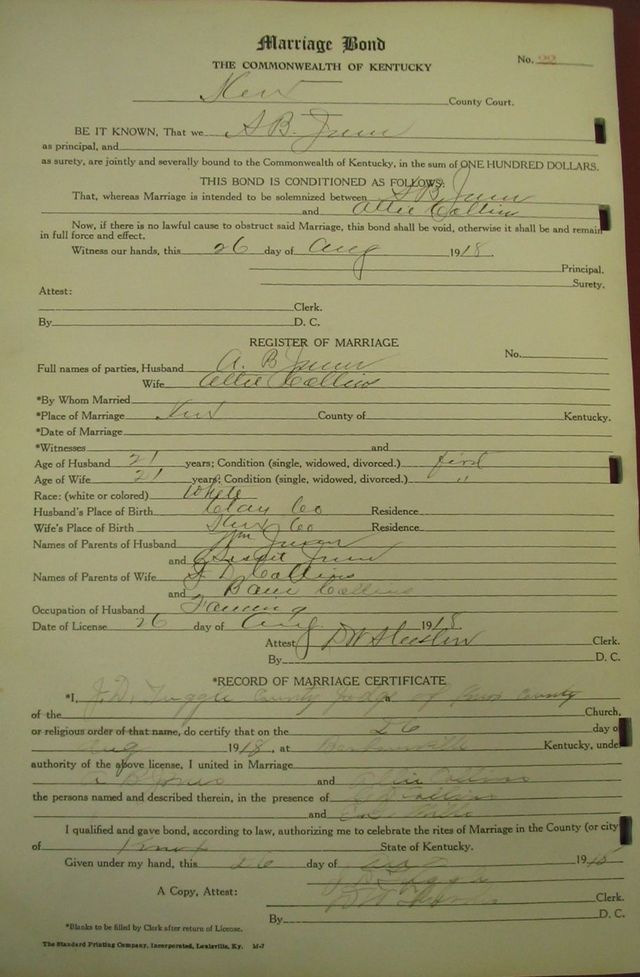 Marriage Bond
THE COMMONWEALTH OF KENTUCKY
No. 22
County Court.
BE IT KNOWN, That we
as principal, and
as surety, are jointly and severally bound to the Commonwealth of Kentucky, in the sum of ONE HUNDRED DOLLARS.
THIS BOND IS CONDITIONED AS FOLLOWS:
That, whereas Marriage is intended to be solemnized between
and Allie Collins
Now, if there is no lawful cause to obstruct said Marriage, this bond shall be void, otherwise it shall be and remain
in full force and effect.
Witness our hands, this 26 day of Aug 1918.
Principal.
Surety.
Attest:
Clerk.
By D. C.
REGISTER OF MARRIAGE
No.
Full names of parties, Husband A. B.
Wife Allie Collins
*By Whom Married
*Place of Marriage County of Kentucky.
*Date of Marriage
*Witnesses and
Age of Husband 21 years; Condition (single, widowed, divorced.) first
Age of Wife 21 years; Condition (single, widowed, divorced.) "
Race: (white or colored) White
Husband's Place of Birth Clay Co Residence
Wife's Place of Birth Co Residence
Names of Parents of Husband Wm
and
Names of Parents of Wife Collins
and Collins
Occupation of Husband Farming
Date of License 26 day of Aug 1918.
Attest Clerk.
By D. C.
*RECORD OF MARRIAGE CERTIFICATE
*I, J. D. Tuggle County Judge of Knox County
of the Church.
or religious order of that name, do certify that on the 26 day of
Aug 1918, at Barbourville Kentucky, under
authority of the above license, I united in Marriage
A B Jones and Allie Collins
the persons named and described therein, in the presence of
and
I qualified and gave bond, according to law, authorizing me to celebrate the rites of Marriage in the County (or city)
of Knox State of Kentucky.
Given under my hand, this 26 day of Aug 1918
A Copy, Attest: Clerk.
By D. C.
*Blanks to be filled by Clerk after return of License.
The Standard Printing Company, Incorporated, Louisville, Ky. M-7